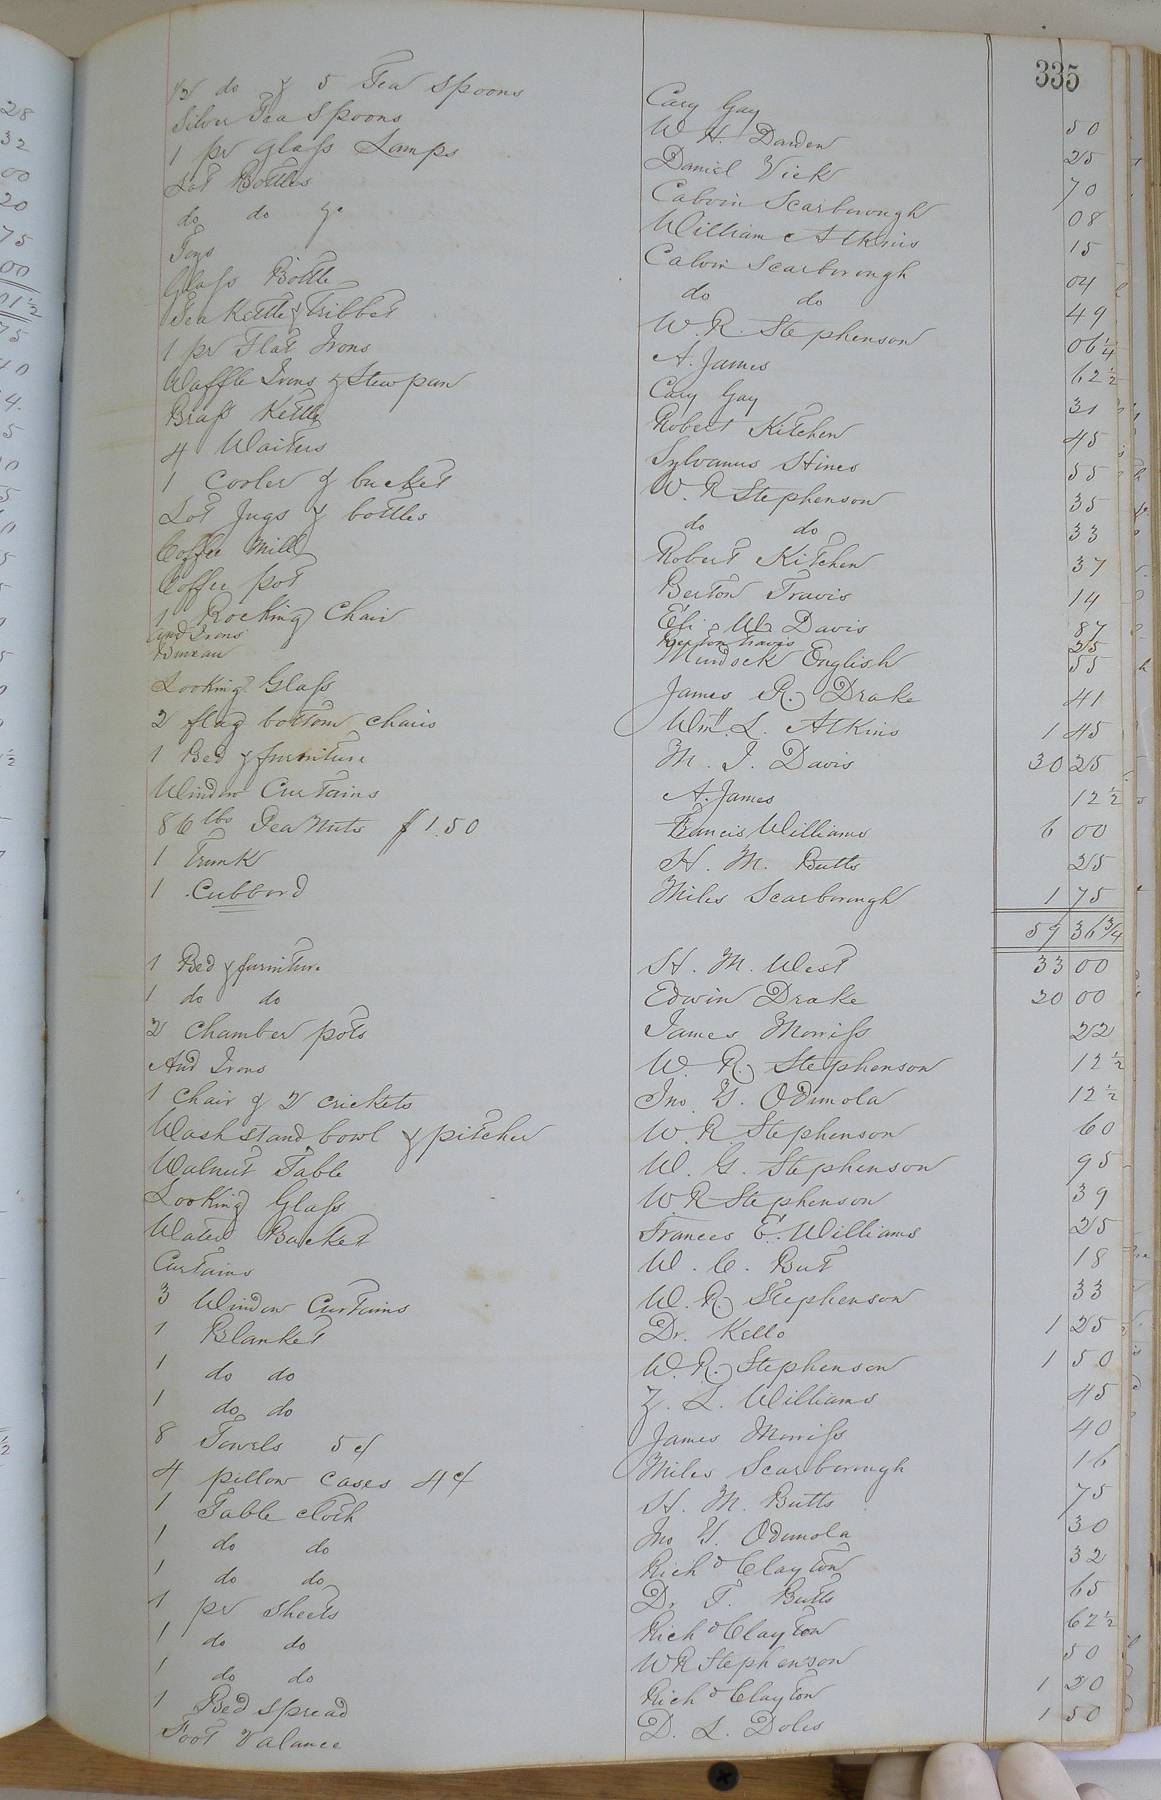 335
12 do & 5 Tea Spoons Cary Gay 50
Silver Tea Spoons W H. Darden 25
1 pr glass Lamps Daniel Vick 70
Lot Bottles Calvin Scarborough 08
do do &c William Atkins 15
Toys Calvin Scarborough 04
Glass Bottle do do 49
Tea Kettle & Tribbet W. R. Stephenson 06 1/4
1 pr Flat Irons A. James 62 1/2
Waffle Irons & Stew pan Cary Gay 31
Brass Kettle Robert Kitchen 45
4 Waiters Sylvanus Hines 55
1 Cooler & bucket W. R Stephenson 35
Lot Jugs & bottles do do 33
Coffee Mill Robert Kitchen 37
Coffee pot Berton Travis 14
1 Rocking Chair Eli W. Davis 87
And Irons Berton Travis 25
Bureau Murdock English 55
Looking Glass James R. Drake 41
2 flag bottom chairs Wm. L. Atkins 1 45
1 Bed & furniture M. J. Davis 30 25
Window Curtains A. James 12 1/2
86 lbs Pea Nuts $1.50 Francis Williams 6 00
1 Trunk H. M. Butts 25
1 Cubbord Miles Scarborough 1 75
59 36 3/4
1 Bed & furniture H. M. West 33 00
1 do do Edwin Drake 20 00
2 Chamber pots James Morriss 22
And Irons W. R. Stephenson 12 1/2
1 Chair & 2 crickets Jno. Odumola 12 1/2
Wash stand bowl & pitcher W. R Stephenson 60
Walnut Table W. G. Stephenson 95
Looking Glass W R Stephenson 39
Water Bucket Frances E. Williams 25
Curtains W. C. But 18
3 Window Curtains W. R. Stephenson 33
1 Blanket Dr. Kello 1 25
1 do do W. R. Stephenson 1 50
1 do do L. Williams 45
8 Towels 5¢ James Morriss 40
4 pillow cases 4¢ Miles Scarborough 16
1 Table cloth H. M. Butts 75
1 do do Jno Odumola 30
1 do do Richd Clayton 32
1 pr sheets D. T. Butts 65
1 do do Richd Clayton 62 1/2
1 do do W R Stephenson 50
1 Bed spread Richd Clayton 1 20
Foot Valance D. L. Doles 1 50